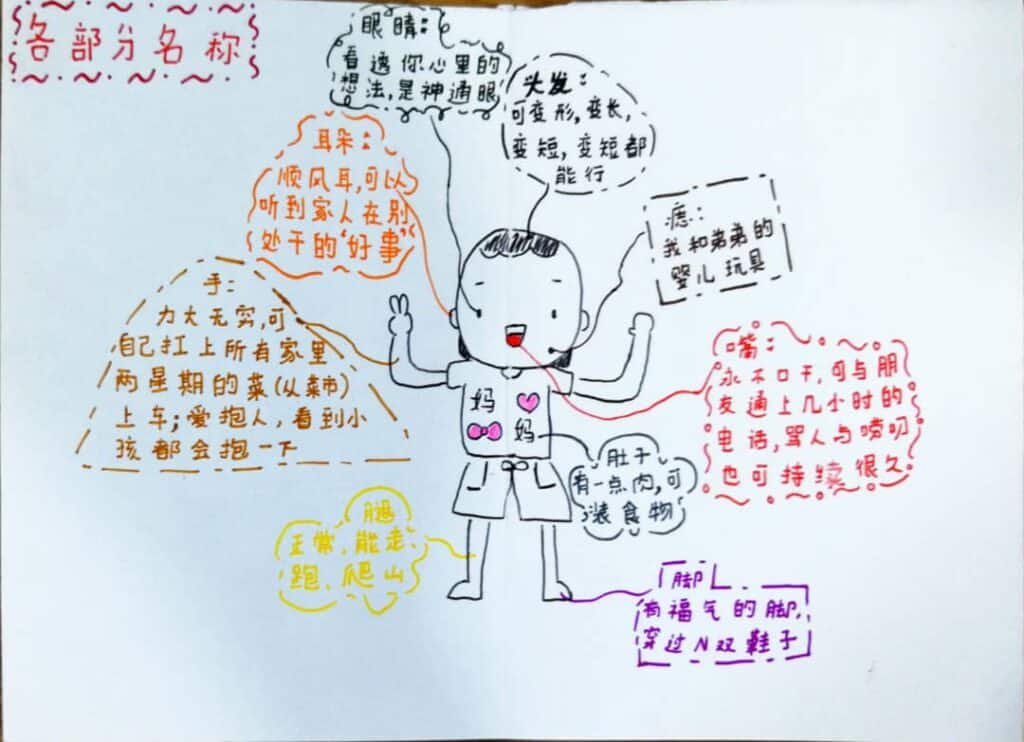 各部分名称
眼睛:
看透你心里的
想法,是神通眼
头发:
可变形,变长,
变短,变短都
能行
耳朵:
顺风耳,可以
听到家人在别
处干的“好事”
痣:
我和弟弟的
婴儿玩具
手:
力大无穷,可
自己扛上所有家里
两星期的菜(从菜市)
上车;爱抱人,看到小
孩都会抱一下
嘴:
永不口干,可与朋
友通上几小时的
电话,骂人与唠叨
也可持续很久
妈
妈
肚子
有一点肉,可
装食物
腿
正常、能走、
跑、爬山
脚
有福气的脚,
穿过N双鞋子